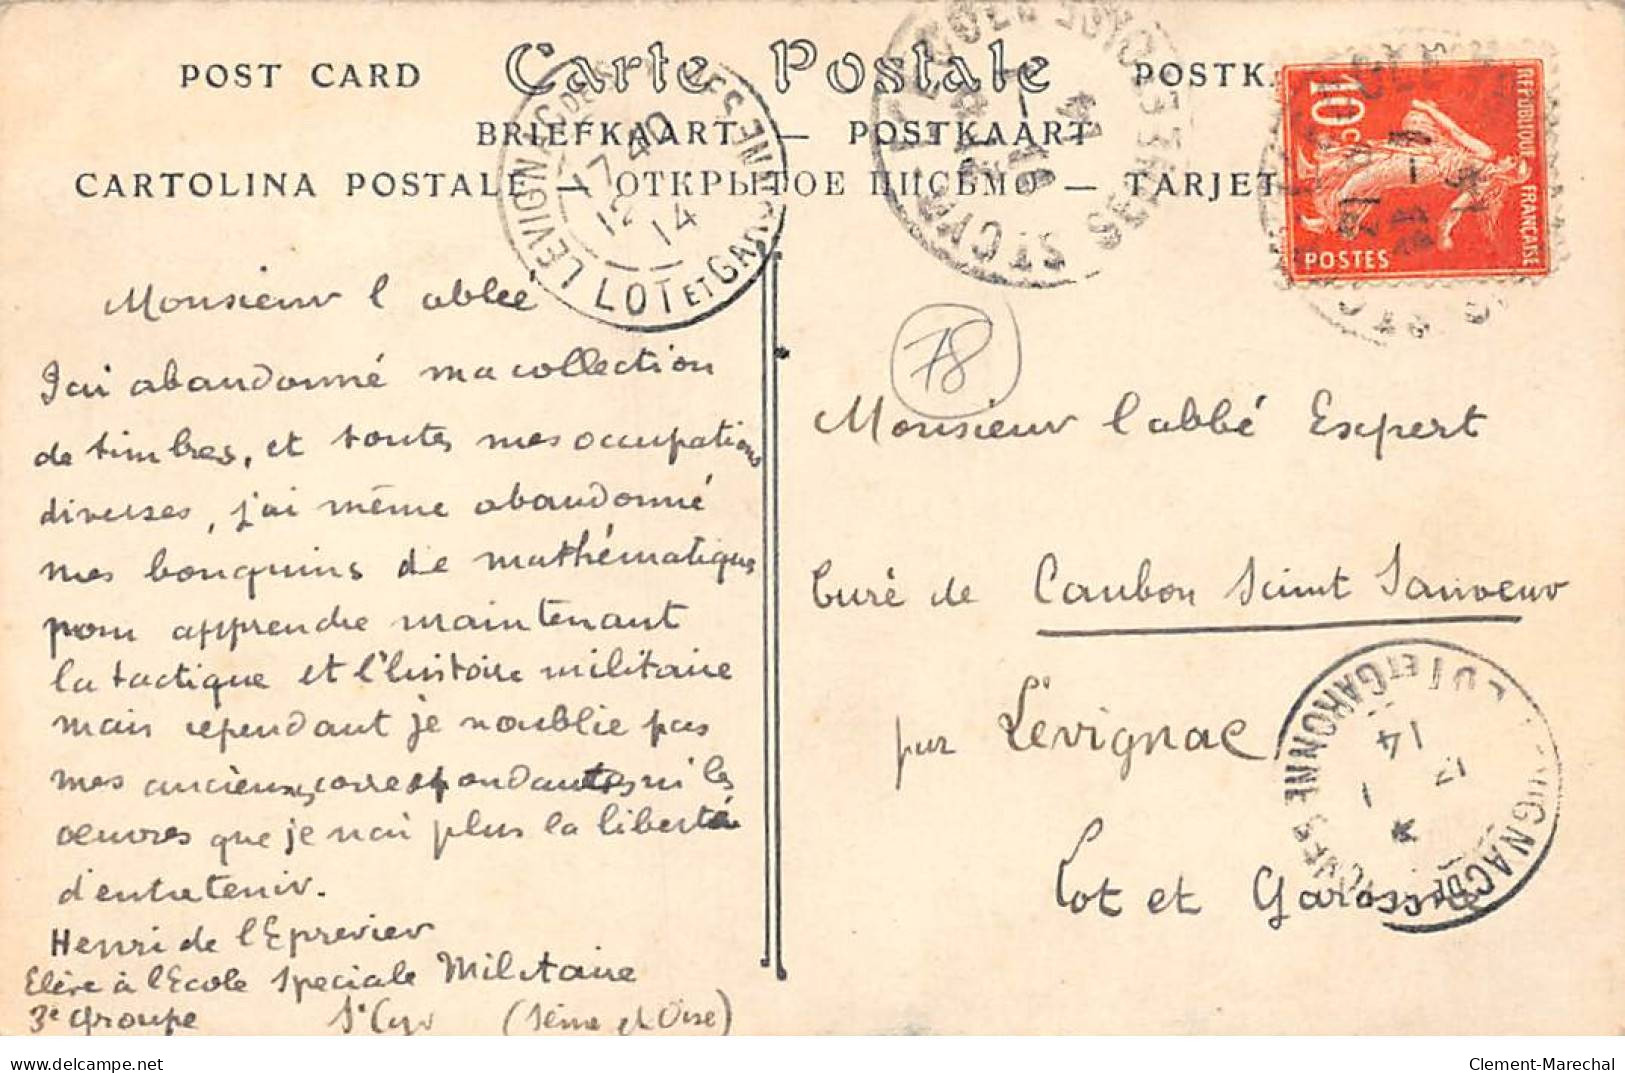 POST CARD
Carte Postale
POSTK
BRIEFKAART — POSTKAART
CARTOLINA POSTALE — ОТКРЫТОЕ ПИСЬМО — TARJET
REPUBLIQUE FRANÇAISE
10c
POSTES
17 40
12
14
LOT ET GARONNE
78
Monsieur l abbé
J'ai abandonné ma collection
de timbres, et toutes mes occupations
diverses, j'ai même abandonné
mes bouquins de mathématiques
pour apprendre maintenant
la tactique et l'histoire militaire
mais cependant je n'oublie pas
mes anciens correspondants ni les
oeuvres que je n'ai plus la liberté
d'entretenir.
Henri de l'Eprevier
Elève à l'Ecole Speciale Militaire
3e Groupe St Cyr (Seine et Oise)
Monsieur l'abbé Expert
Curé de Caubon Saint Sauveur
par Lévignac
Lot et Garonne
LOT ET GARONNE
14
delcampe.net
Clement-Marechal